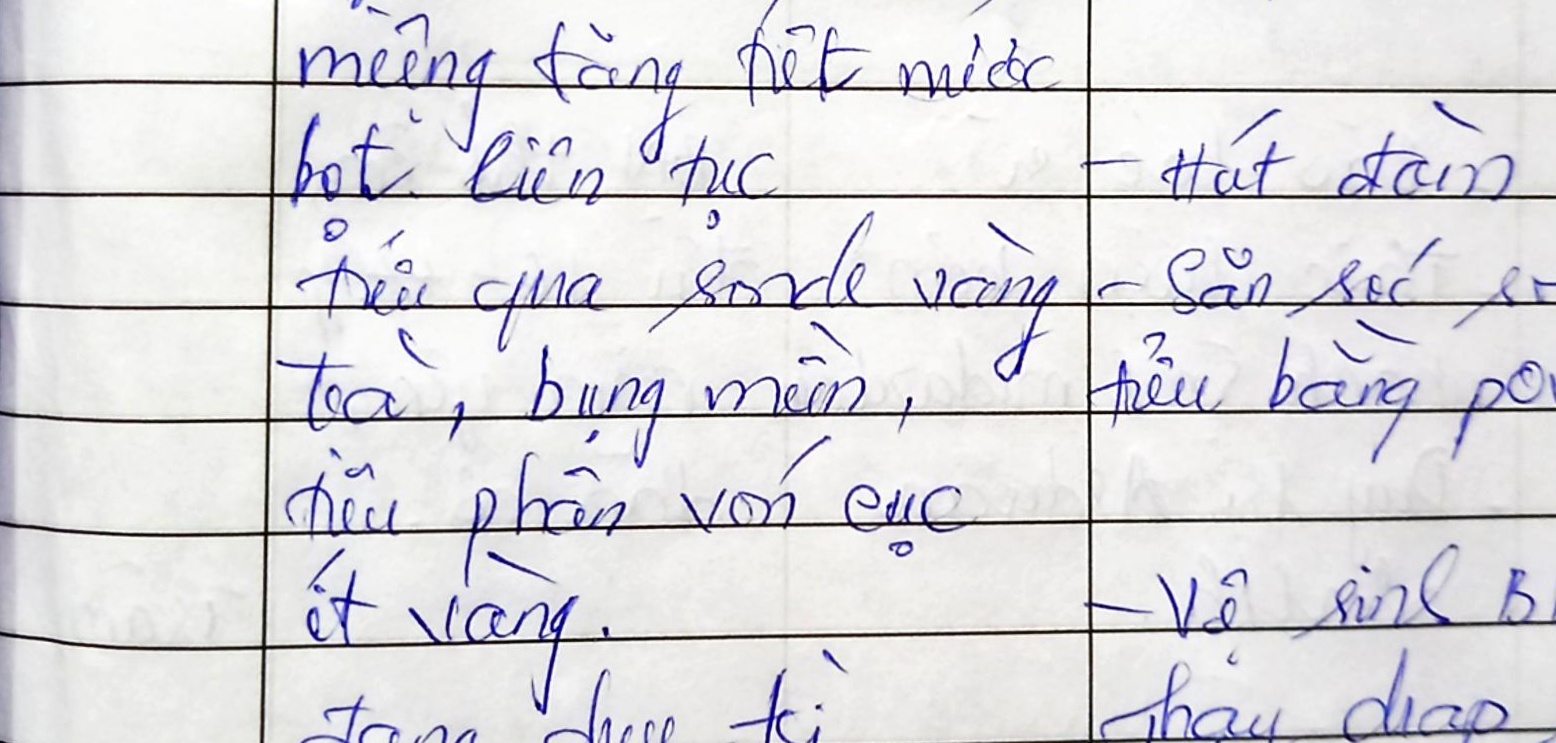 miệng tăng tiết nước
bọt liên tục
tiểu qua sonde vàng
toà, bụng mềm,
tiêu phân vón cục
ít vàng.
- Hút đàm
- Săn sóc
tiểu bằng
- Vệ sinh
Thay